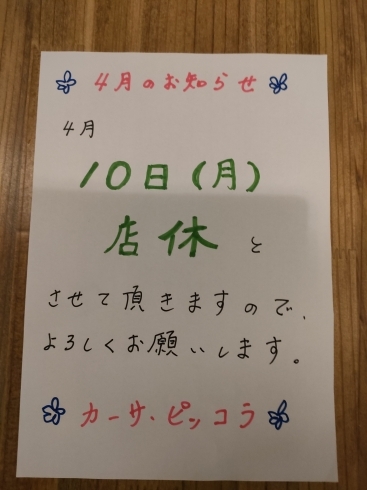 4月のお知らせ
4月
10日(月)
店休と
させて頂きますので、
よろしくお願いします。
カーサ・ピッコラ